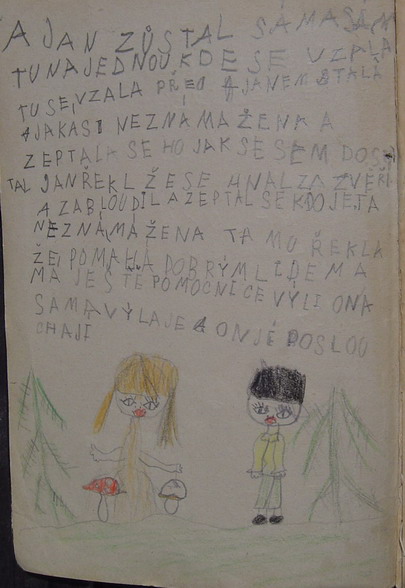 A JAN ZŮSTAL SÁM A SÁM
TU NAJEDNOU KDE SE VZALA
TU SE VZALA PŘED JANEM STÁLA
JAKASI NEZNÁMA ŽENKA A
ZEPTALA SE HO JAK SE SEM DOS
TAL JAN ŘEKL ŽE SE HNAL ZA ZVĚŘÍ
A ZABLOUDIL A ZEPTAL SE KDO JE TA
NEZNÁMÁ ŽENA TA MU ŘEKLA
ŽE POMAHÁ DOBRÝM LIDEM A
MA JEŠTĚ POMOCNICE VÝLI ONA
SAMA VÝLA JE A ONJÉ POSLOU
CHAJÍ